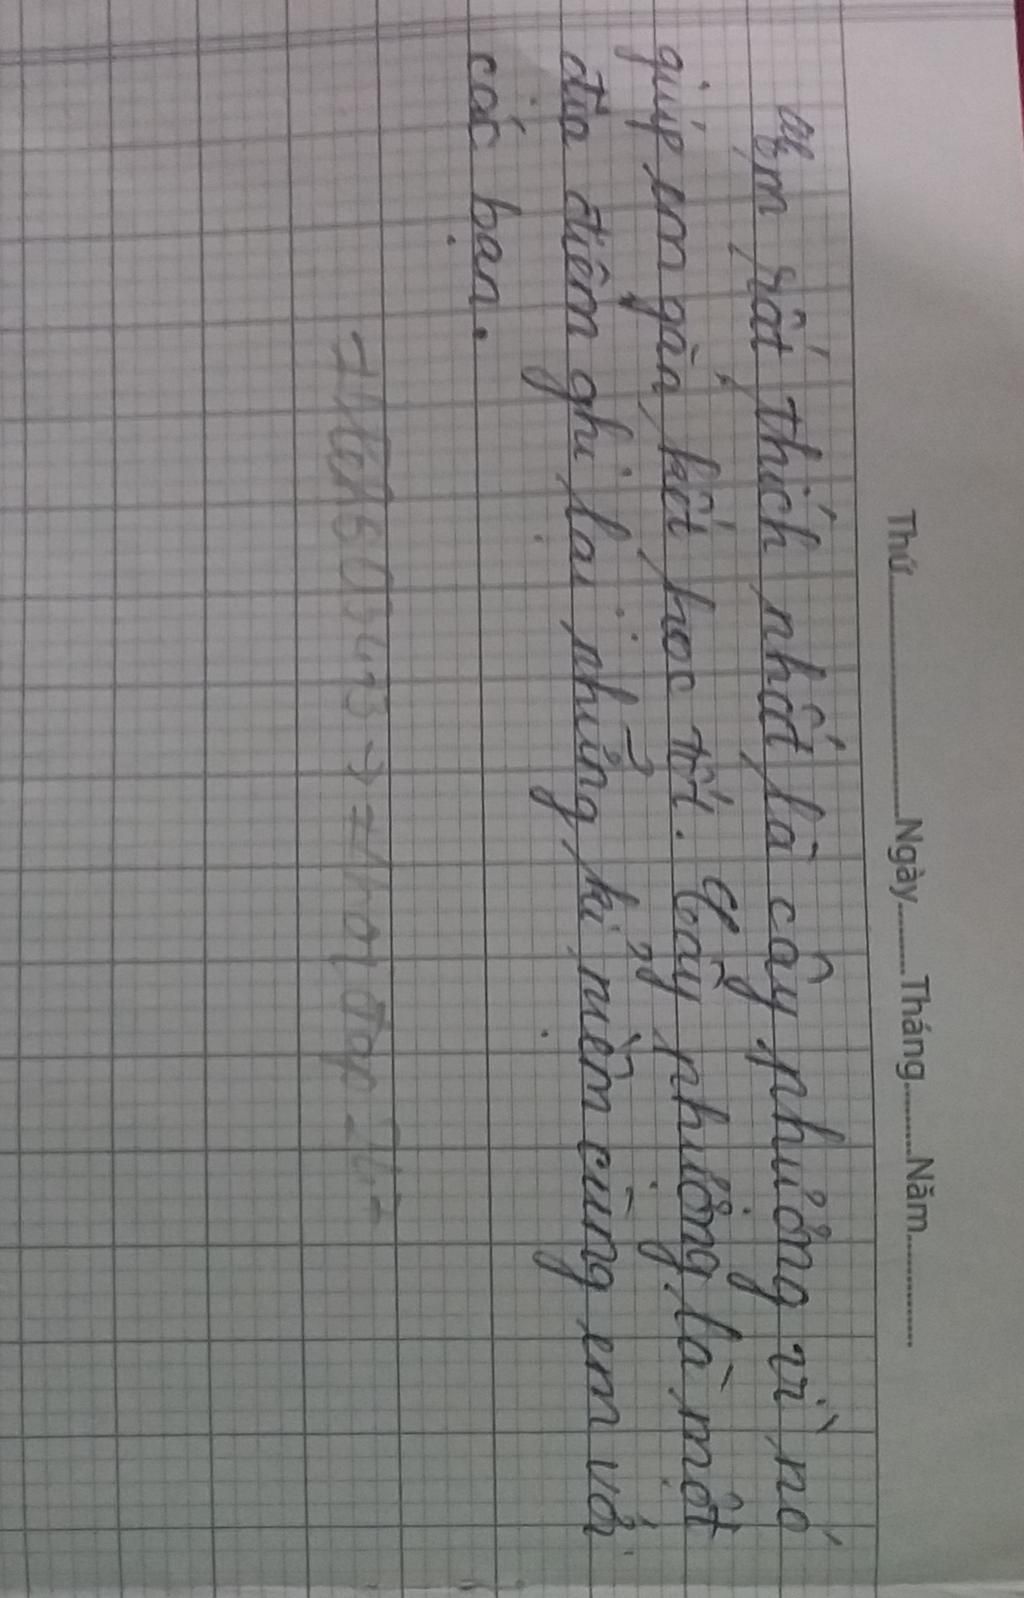 Thứ............Ngày......Tháng......Năm............
Em rất thích nhất là cây phượng vì nó
giúp em gần kết học tốt. Cây phượng là một
địa điểm ghi lại những kỉ niềm cùng em với
các bạn.